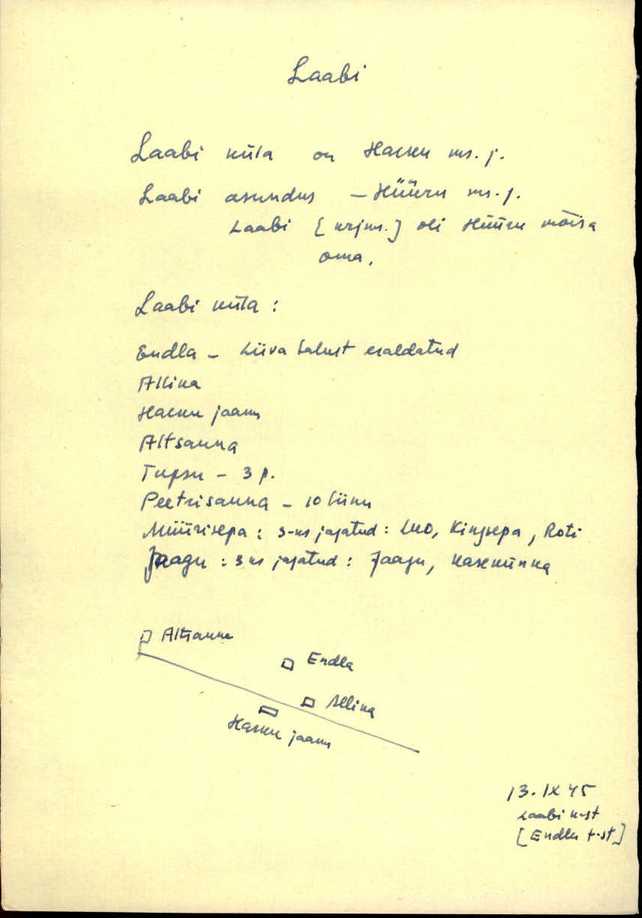 Laabi
Laabi küla on Harku ms. j.
Laabi asundus – Hüüru ms. j.
Laabi [krjms.] oli Hüüru mõisa
oma.
Laabi küla:
Endla – Liiva talust eraldatud
Allika
Harku jaam
Altsauna
Tupsu – 3 p.
Peetrisauna – 10
Müürisepa: 3-ks jagatud: Kingsepa, Roti
Jaagu: 3 ks jagatud: Jaagu, Kasekünka
Altsauna
Endla
Allika
Harku jaam
13. IX 45
Laabi k-st
[Endla t-st]